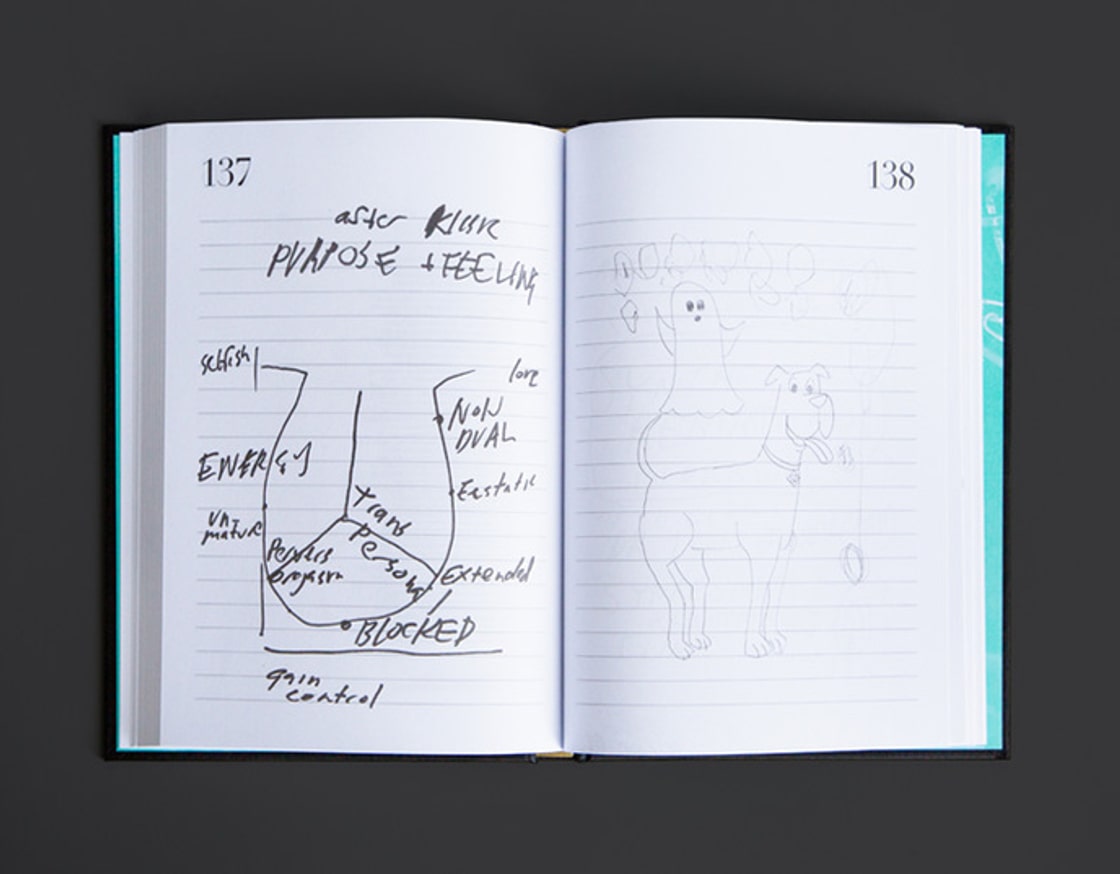 137
after
PURPOSE + FEELING
selfish
love
NON
DUAL
ENERGY
Ecstatic
un-
mature
Trans
Persona
orgasm
Extended
BLOCKED
gain
control
138